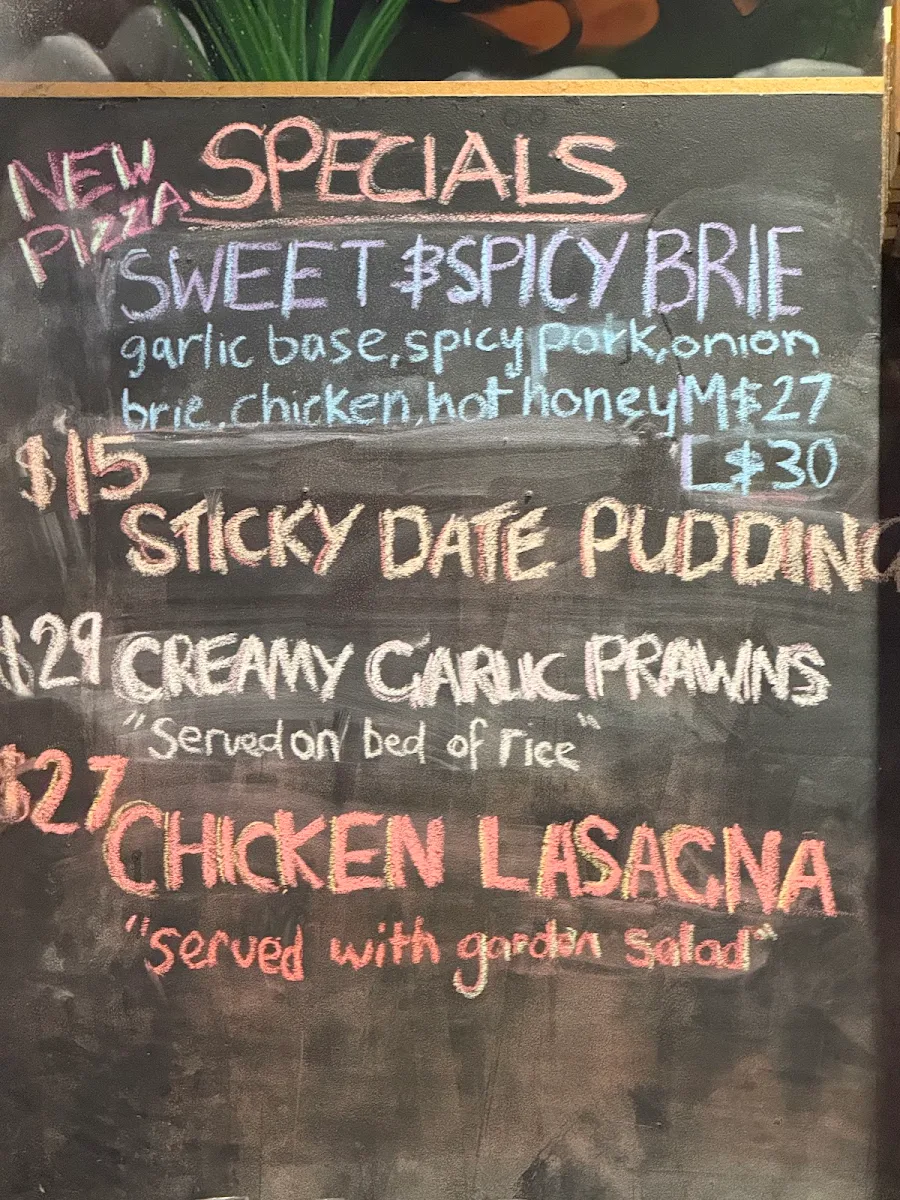 NEW
PIZZA
SPECIALS
SWEET & SPICY BRIE
garlic base, spicy pork, onion
brie, chicken, hot honey M$27
L$30
$15
STICKY DATE PUDDING
$29 CREAMY GARLIC PRAWNS
"Served on bed of rice"
$27
CHICKEN LASAGNA
"served with garden salad"